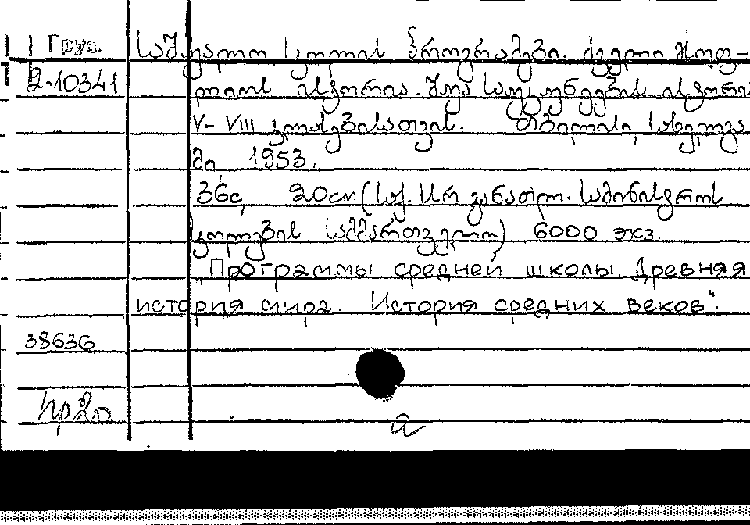 Груз. საშუალო სკოლის პროგრამები. ძველი მსოფ-
2-10341 ლიოს ისტორია. შუა საუკუნეების ისტორია
V-VIII კლასებისათვის. თბილისი, სახელგა
მი 1953.
36с, 20см (საქ. სსრ განათლ. სამინისტროს
სკოლების სამმართველო) 6000 экз.
"Программы средней школы. Древняя
история мира. История средних веков".
38636